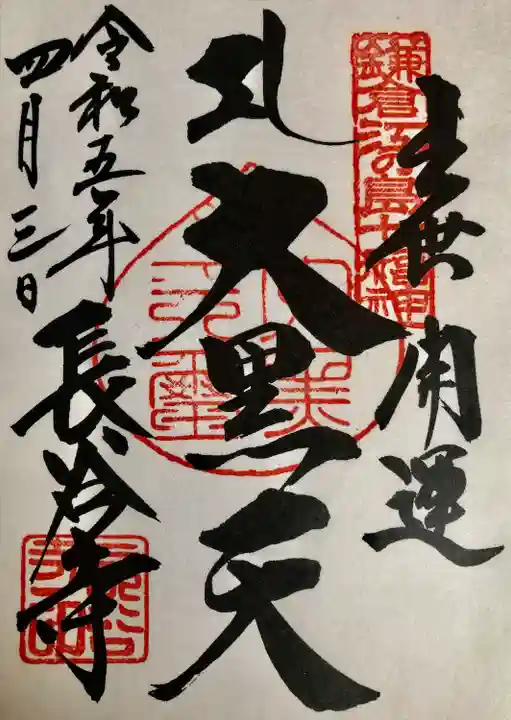 鎌倉江の島七福神
出世開運
大黒天
令和五年
四月三日
長谷寺